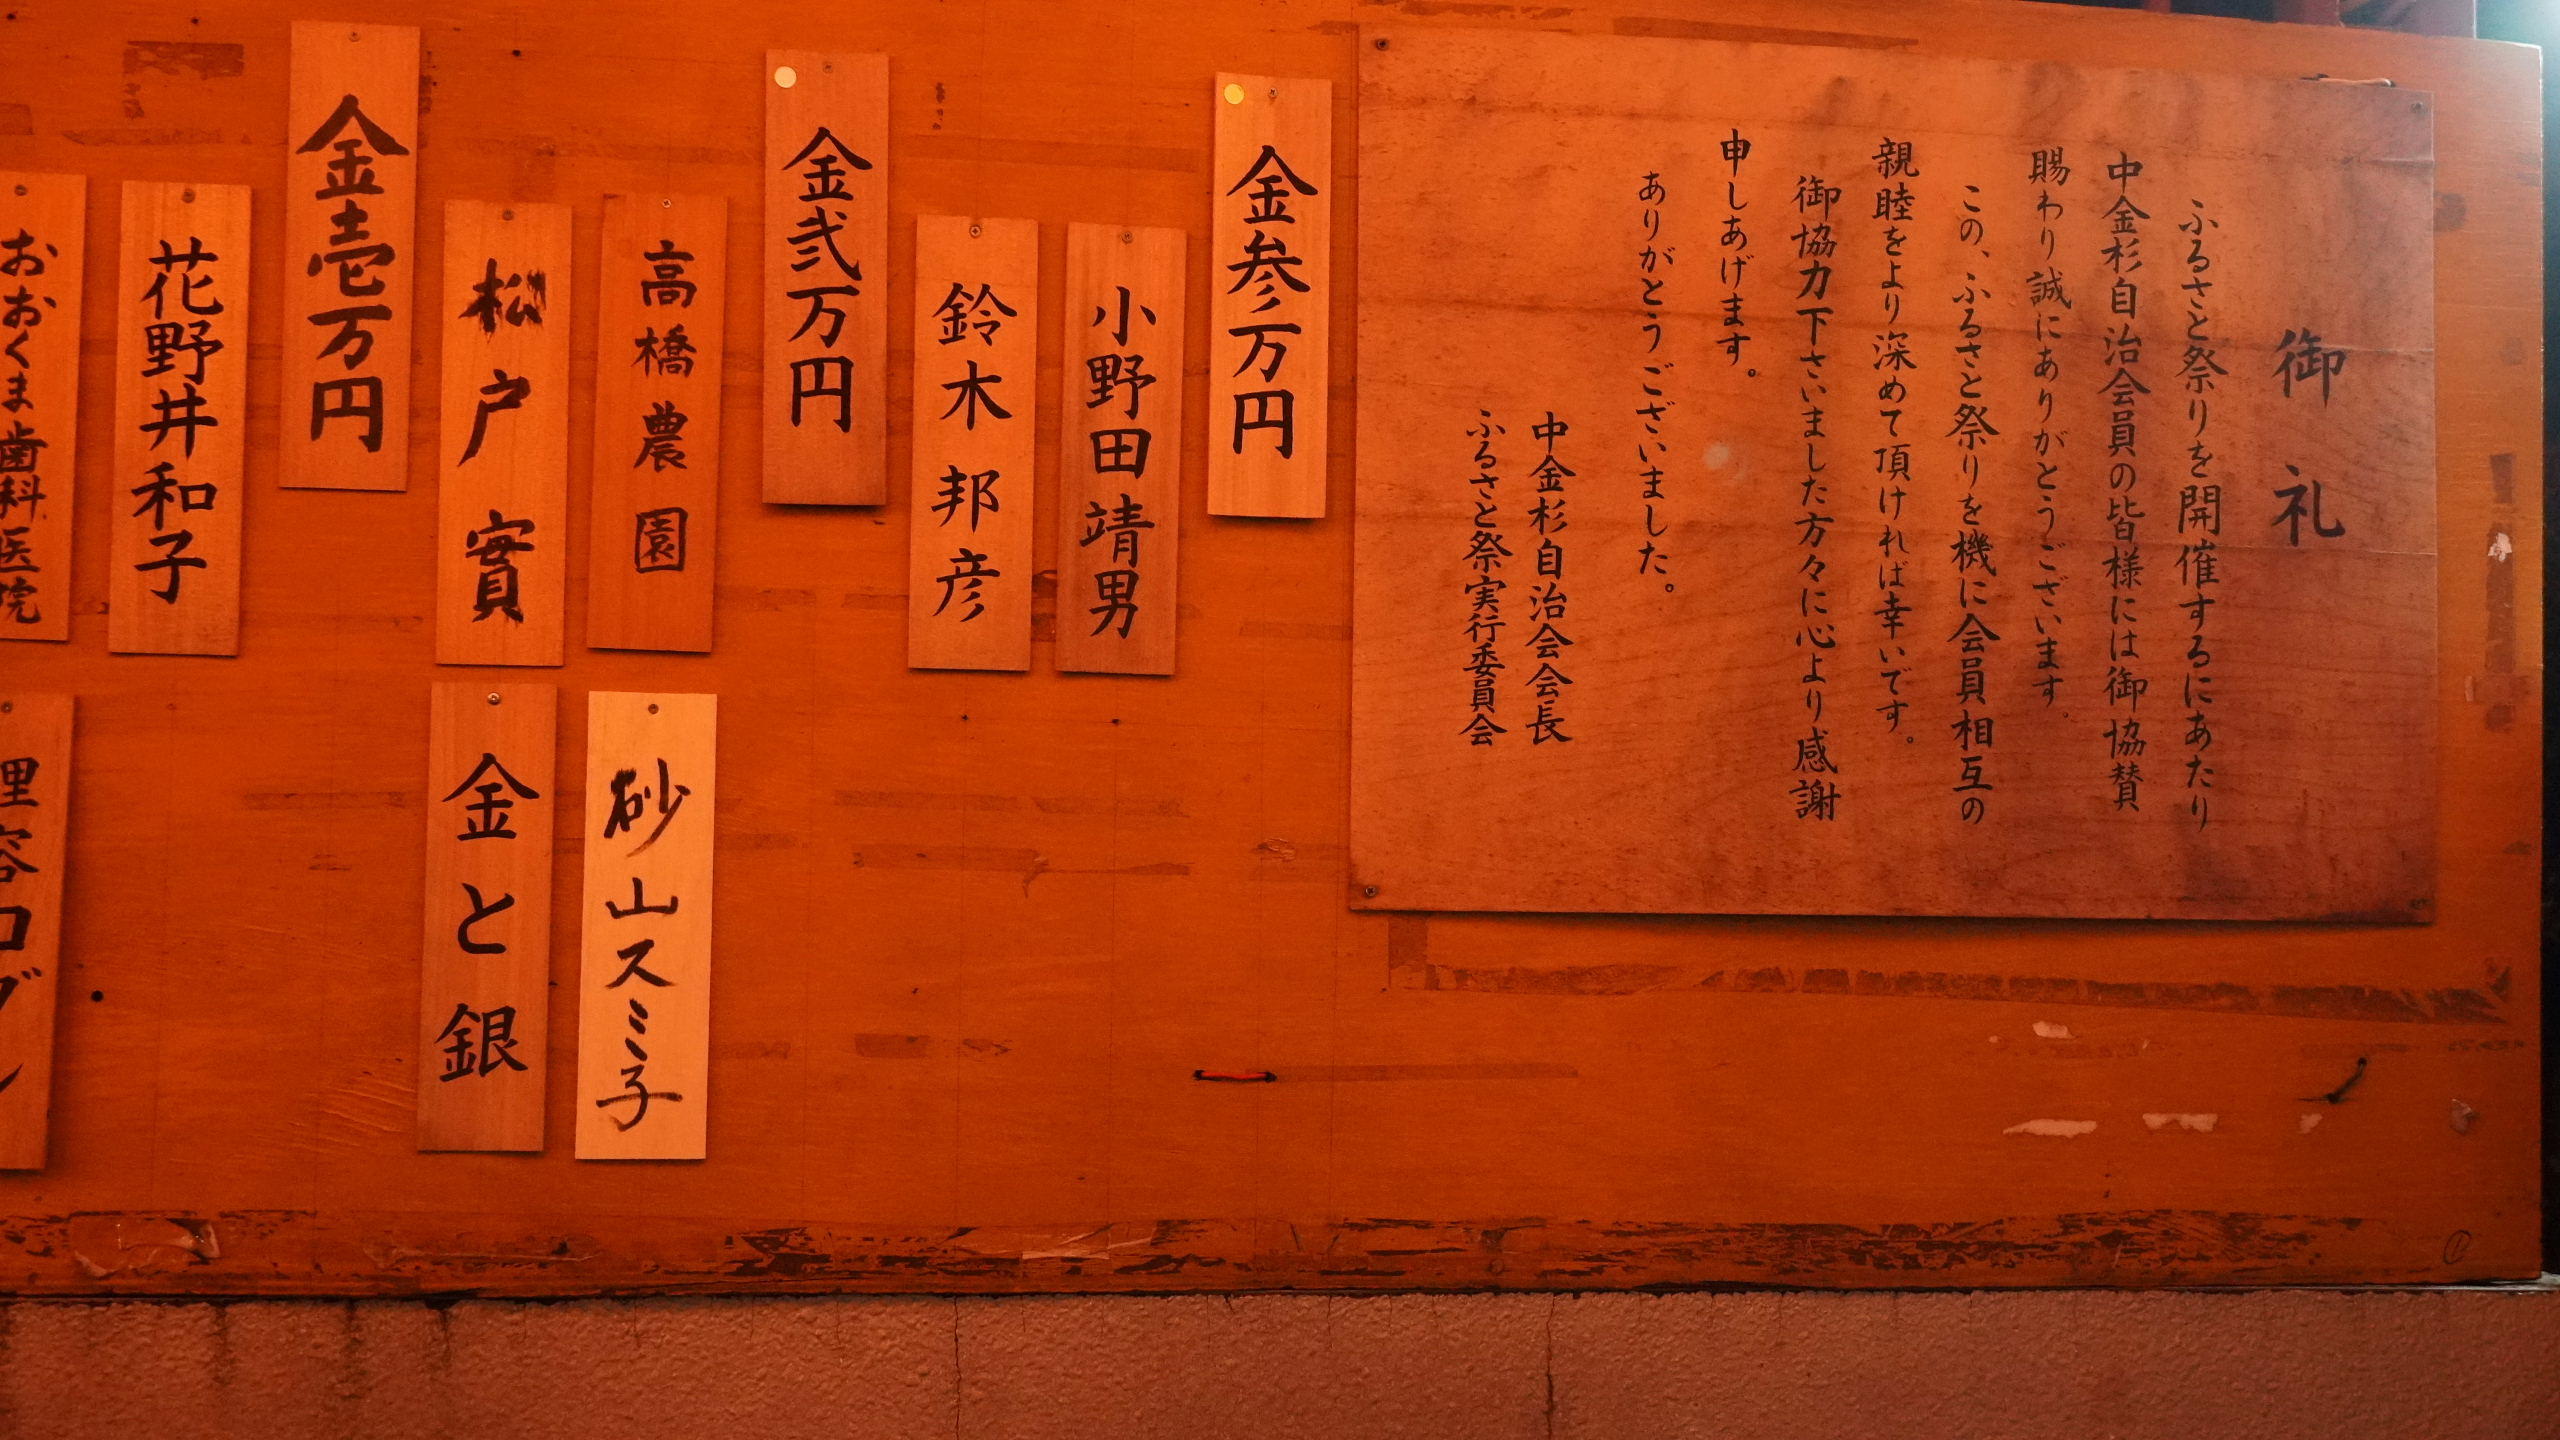 御礼
ふるさと祭りを開催するにあたり
中金杉自治会員の皆様には御協賛
賜わり誠にありがとうございます。
この、ふるさと祭りを機に会員相互の
親睦をより深めて頂ければ幸いです。
御協力下さいました方々に心より感謝
申しあげます。
ありがとうございました。
中金杉自治会会長
ふるさと祭実行委員会
金参万円
小野田靖男
鈴木邦彦
金弐万円
高橋農園
砂山スミ子
松戸實
金と銀
金壱万円
花野井和子
おおくま歯科医院